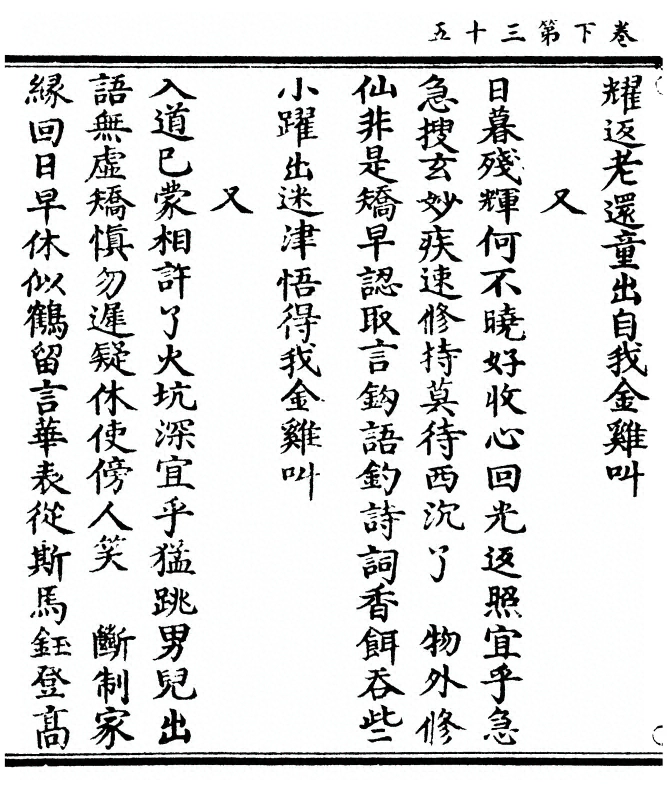 卷下第三十五
耀返老還童出自我金雞叫
又
日暮殘輝何不曉好收心回光返照宜乎急
急搜玄妙疾速修持莫待西沉了　物外修
仙非是矯早認取言鈎語釣詩詞香餌吞些
小躍出迷津悟得我金雞叫
又
入道已蒙相許了火坑深宜乎猛跳男兒出
語無虛矯慎勿遲疑休使傍人笑　斷制家
緣回日早休似鶴留言華表從斯馬鈺登高